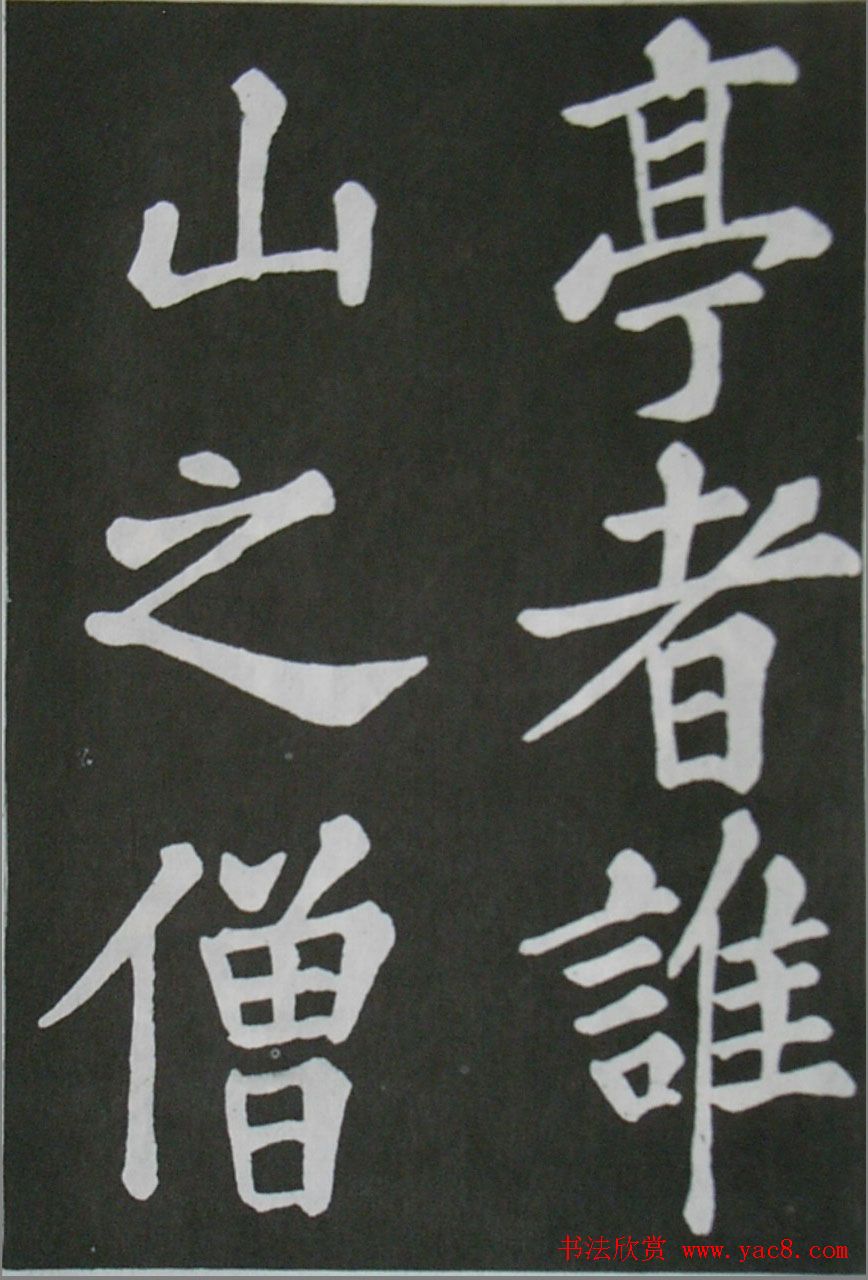 亭者誰
山之僧
书法欣赏 www.yac8.com